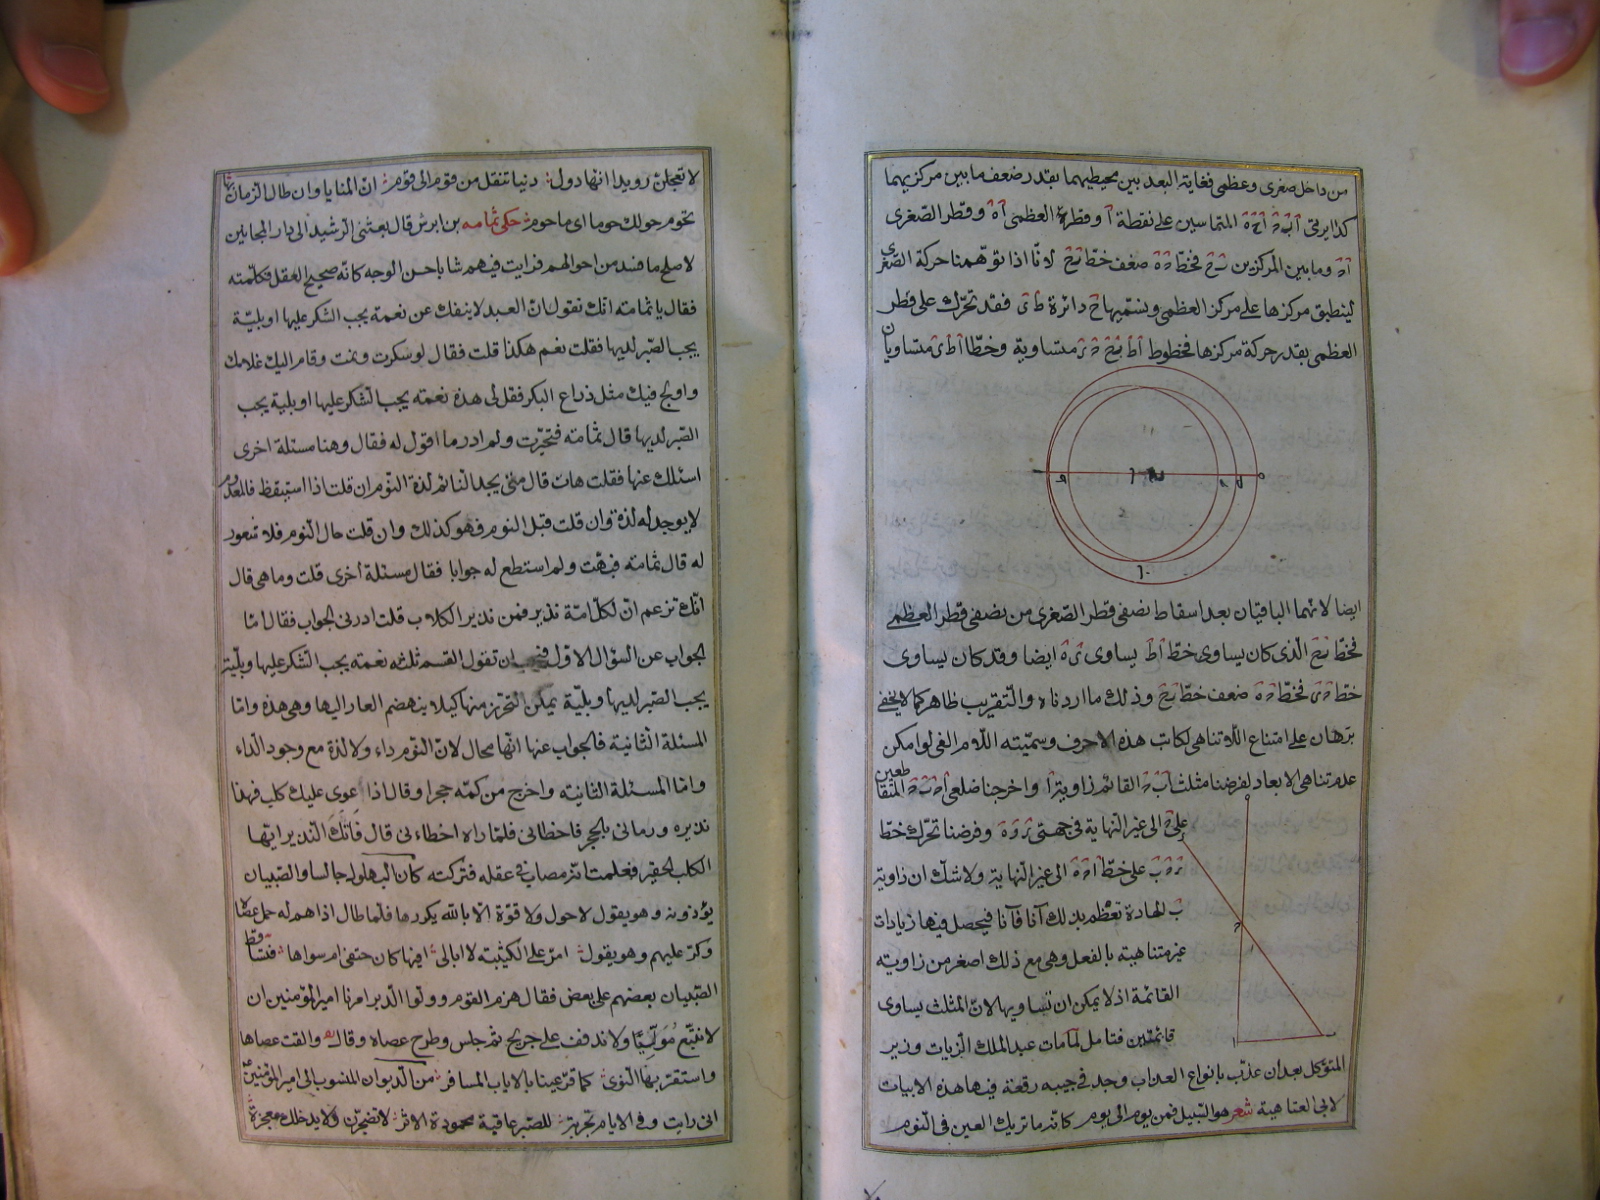 من داخل صغرى وعظمى فغاية البعد بين محيطيهما بقدر ضعف ما بين مركزيهما
كدايرتى ا ب ة ا ج ة المتماسين على نقطة ا وقطر العظمى ا ه وقطر الصغرى
ا د وما بين المركزين ر ح فخط د ه ضعف خط ر ح لانا اذا توهمنا حركة الصغرى
لينطبق مركزها على مركز العظمى ونسميها ح دائرة ط ى فقد تحرك على قطر
العظمى بقدر حركة مركزها فخطوط ا ط ر ح د ى متساوية وخطا ا ط ى ه متساويان
ايضا لانهما الباقيان بعد اسقاط نصفى قطر الصغرى من نصفى قطر العظمى
فخط ر ح الذى كان يساوى خط ا ط يساوى ى ه ايضا وقد كان يساوى
خط د ى فخط د ه ضعف خط ر ح وذلك ما اردناه والتقريب ظاهر كما لا يخفى
برهان على امتناع اللاتناهى لكاتب هذه الاحرف وسميته اللام الفى لو امكن
عدم تناهى الابعاد لفرضنا مثلث ا ب ة القائم زاوية ا واخرجنا ضلعى ا ة ب ة المتقاطعين
على ة الى غير النهاية فى جهتى وفرضنا تحرك خط
على خط الى غير النهاية ولا شك ان زاوية
ب الحادة تعظم بذلك آنا فآنا فيحصل فيها زيادات
غير متناهية بالفعل وهى مع ذلك اصغر من زاوية
القائمة اذ لا يمكن ان تساويها لان المثلث يساوى
قائمتين فتامل لما مات عبد الملك الزيات وزير
المتوكل بعد ان عذب بانواع العذاب وجد فى جيبه رقعة فيها هذه الابيات
لابى العتاهية شعر هو السبيل فمن يوم الى يوم كانه ما تريك العين فى النوم
لا تعجلن رويدا انها دول دنيا تنقل من قوم الى قوم ان المنايا وان طال الزمان بها
تحوم حولك حوما اى ما حوم حكى ثمامه بن ابرش قال بعثنى الرشيد الى دار المجانين
لاصلح ما فسد من احوالهم فرايت فيهم شابا حسن الوجه كانه صحيح العقل فكلمته
فقال يا ثمامته انك تقول ان العبد لا ينفك عن نعمته يجب الشكر عليها او بلية
يجب الصبر لديها فقلت نعم هكذا قلت فقال لو سكرت ونمت وقام اليك غلامك
واولج فيك مثل ذراع البكر فقل لى هذه نعمته يجب الشكر عليها او بلية يجب
الصبر لديها قال ثمامته فتحيرت ولم ادر ما اقول له فقال وهنا مسئلة اخرى
اسئلك عنها فقلت هات قال متى يجد النائم لذة النوم ان قلت اذا استيقظ فالمعدوم
لا يوجد له لذة وان قلت قبل النوم فهو كذلك وان قلت حال النوم فلا شعور
له قال ثمامته فبهت ولم استطع له جوابا فقال مسئلة أخرى قلت وما هى قال
انك تزعم ان لكل امة نذير فمن نذير الكلاب قلت ادرى الجواب فقال اما
الجواب عن السؤال الاول فيجب ان تقول القسم ثلثه نعمته يجب الشكر عليها وبلية
يجب الصبر لديها وبلية يمكن التحرز منها كيلا ينهضم العار اليها وهى هذه واما
المسئلة الثانية فالجواب عنها انها محال لان النوم داء ولا لذة مع وجود الداء
واما المسئلة الثانيته واخرج من كمه حجرا وقال اذا عوى عليك كلب فهذا
نذيره ورمانى بالحجر فاخطانى فلما راه اخطاءنى قال فانك النذير ايها
الكلب الحقير فعلمت انه مصاب فى عقله فتركته كان البهلول جالسا والصبيان
يؤذونه وهو يقول لا حول ولا قوة الا بالله يكررها فلما طال اذاهم له حمل عصا
وكر عليهم وهو يقول امر على الكتيبته لا ابالى افيها كان حتفى ام سواها فتساقط
الصبيان بعضهم على بعض فقال هزم القوم وولوا الدبر امرنا امير المؤمنين ان
لا نتبع موليا ولا ندفف على جريح ثم جلس وطرح عصاه وقال والقت عصاها
واستقر بها النوى كما قر عينا بالاياب المسافر من الديوان المنسوب الى امير المؤمنين
انى رايت وفى الايام تجربة للصبر عاقبة محمودة الاثر لا تضجرن ولا يدخلك معجزة